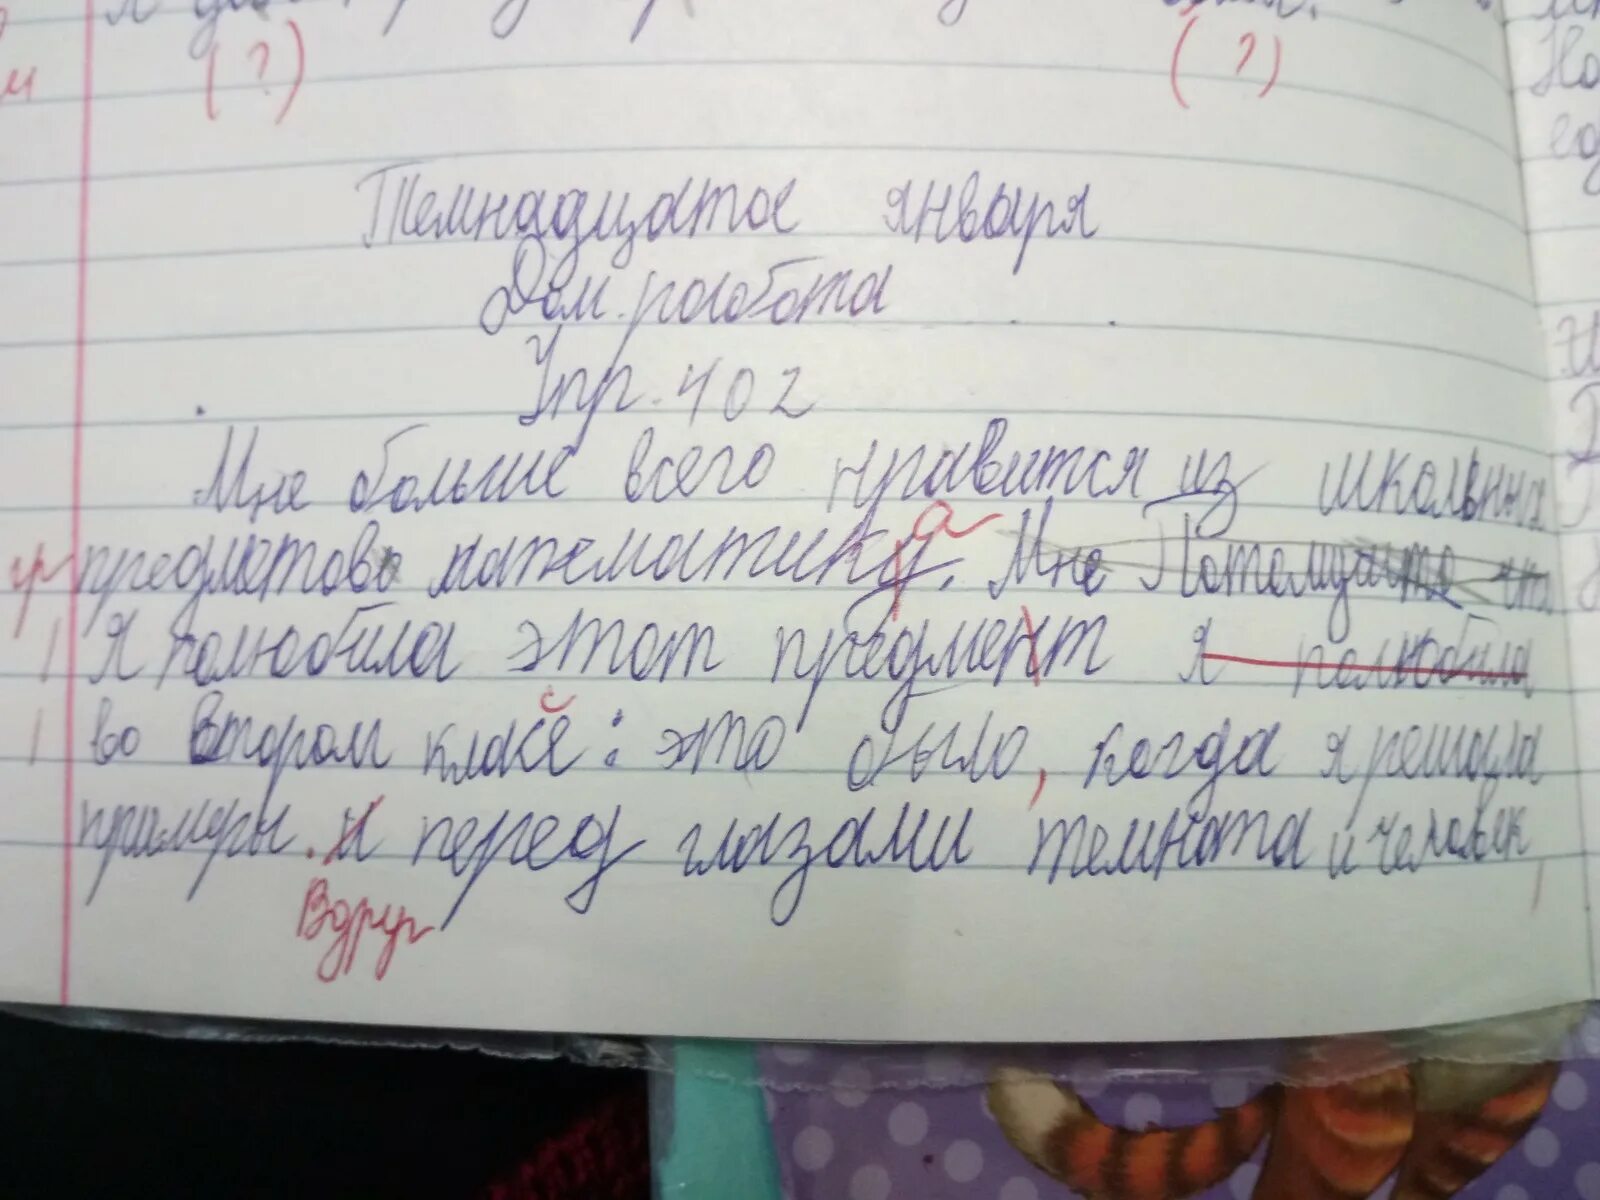 (?) (?)
Темнадцатое января
Дом. работа
Упр. 402
Мне больше всего нравится из школьных
гр предметовь математику. а Мне Потомучто
Я полюбила этот предмент я полюбила
во втором класе: с это было, когда я решала
примеры. и перед глазами темнота и человек,
Вдруг